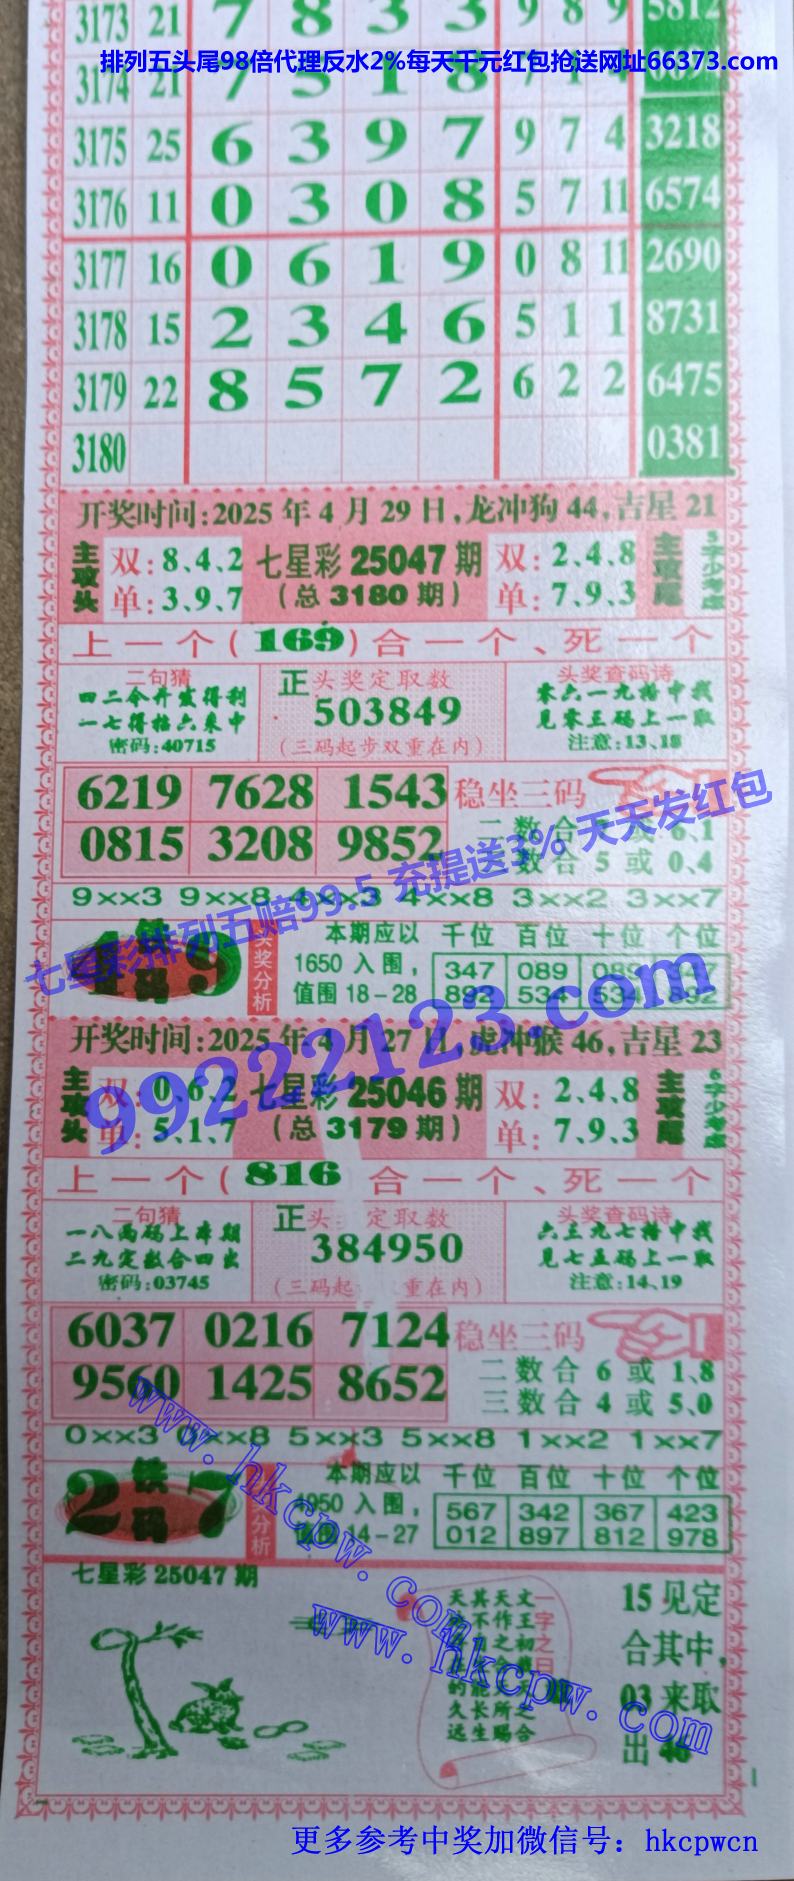 3173 21 7 8 3 3 9 8 9 5812
排列五头尾98倍代理反水2%每天千元红包抢送网址66373.com
3174 21 7 5 1 8 7 1 4
3175 25 6 3 9 7 9 7 4 3218
3176 11 0 3 0 8 5 7 11 6574
3177 16 0 6 1 9 0 8 11 2690
3178 15 2 3 4 6 5 1 1 8731
3179 22 8 5 7 2 6 2 2 6475
3180 0381
开奖时间:2025年4月29日,龙冲狗44,吉星21
主攻头 双:8、4、2 七星彩25047期 双:2、4、8 主攻尾
单:3、9、7 (总3180期) 单:7、9、3
上一个(169)合一个、死一个
二句猜 正 头奖定取数 头奖查码诗
四二今开发得利 503849 零六一九搭中找
一七得拾六来中 见零五码上一取
密码:40715 (三码起步双重在内) 注意:13、18
6219 7628 1543 稳坐三码
二数合 或 6、1
0815 3208 9852 数合 5 或 0、4
9××3 9××8 4××3 4××8 3××2 3××7
七星彩排列五赔99.5 充提送3% 天天发红包
铁码 头奖分析 本期应以 千位 百位 十位 个位
1650入围, 347 089 089
值围18-28 892 534 534 892
99222123.com
开奖时间:2025年4月27日,虎冲猴46,吉星23
主攻头 双:0、6、2 七星彩25046期 双:2、4、8 主攻尾
单:5、1、7 (总3179期) 单:7、9、3
上一个(816 合一个、死一个
二句猜 正 头 定取数 头奖查码诗
一八两码上本期 384950 六三九七搭中找
二九定数合四出 见七五码上一取
密码:03745 (三码起 重在内) 注意:14、19
6037 0216 7124 稳坐三码
二数合 6 或 1、8
9560 1425 8652 三数合 4 或 5、0
0××3 0××8 5××3 5××8 1××2 1××7
2 铁码 7 本期应以 千位 百位 十位 个位
4950入围, 567 342 367 423
14-27 012 897 812 978
www.hkcpw.com
七星彩25047期
一字之曰
15见定
合其中,
03来取
出
www.hkcpw.com
更多参考中奖加微信号：hkcpwcn